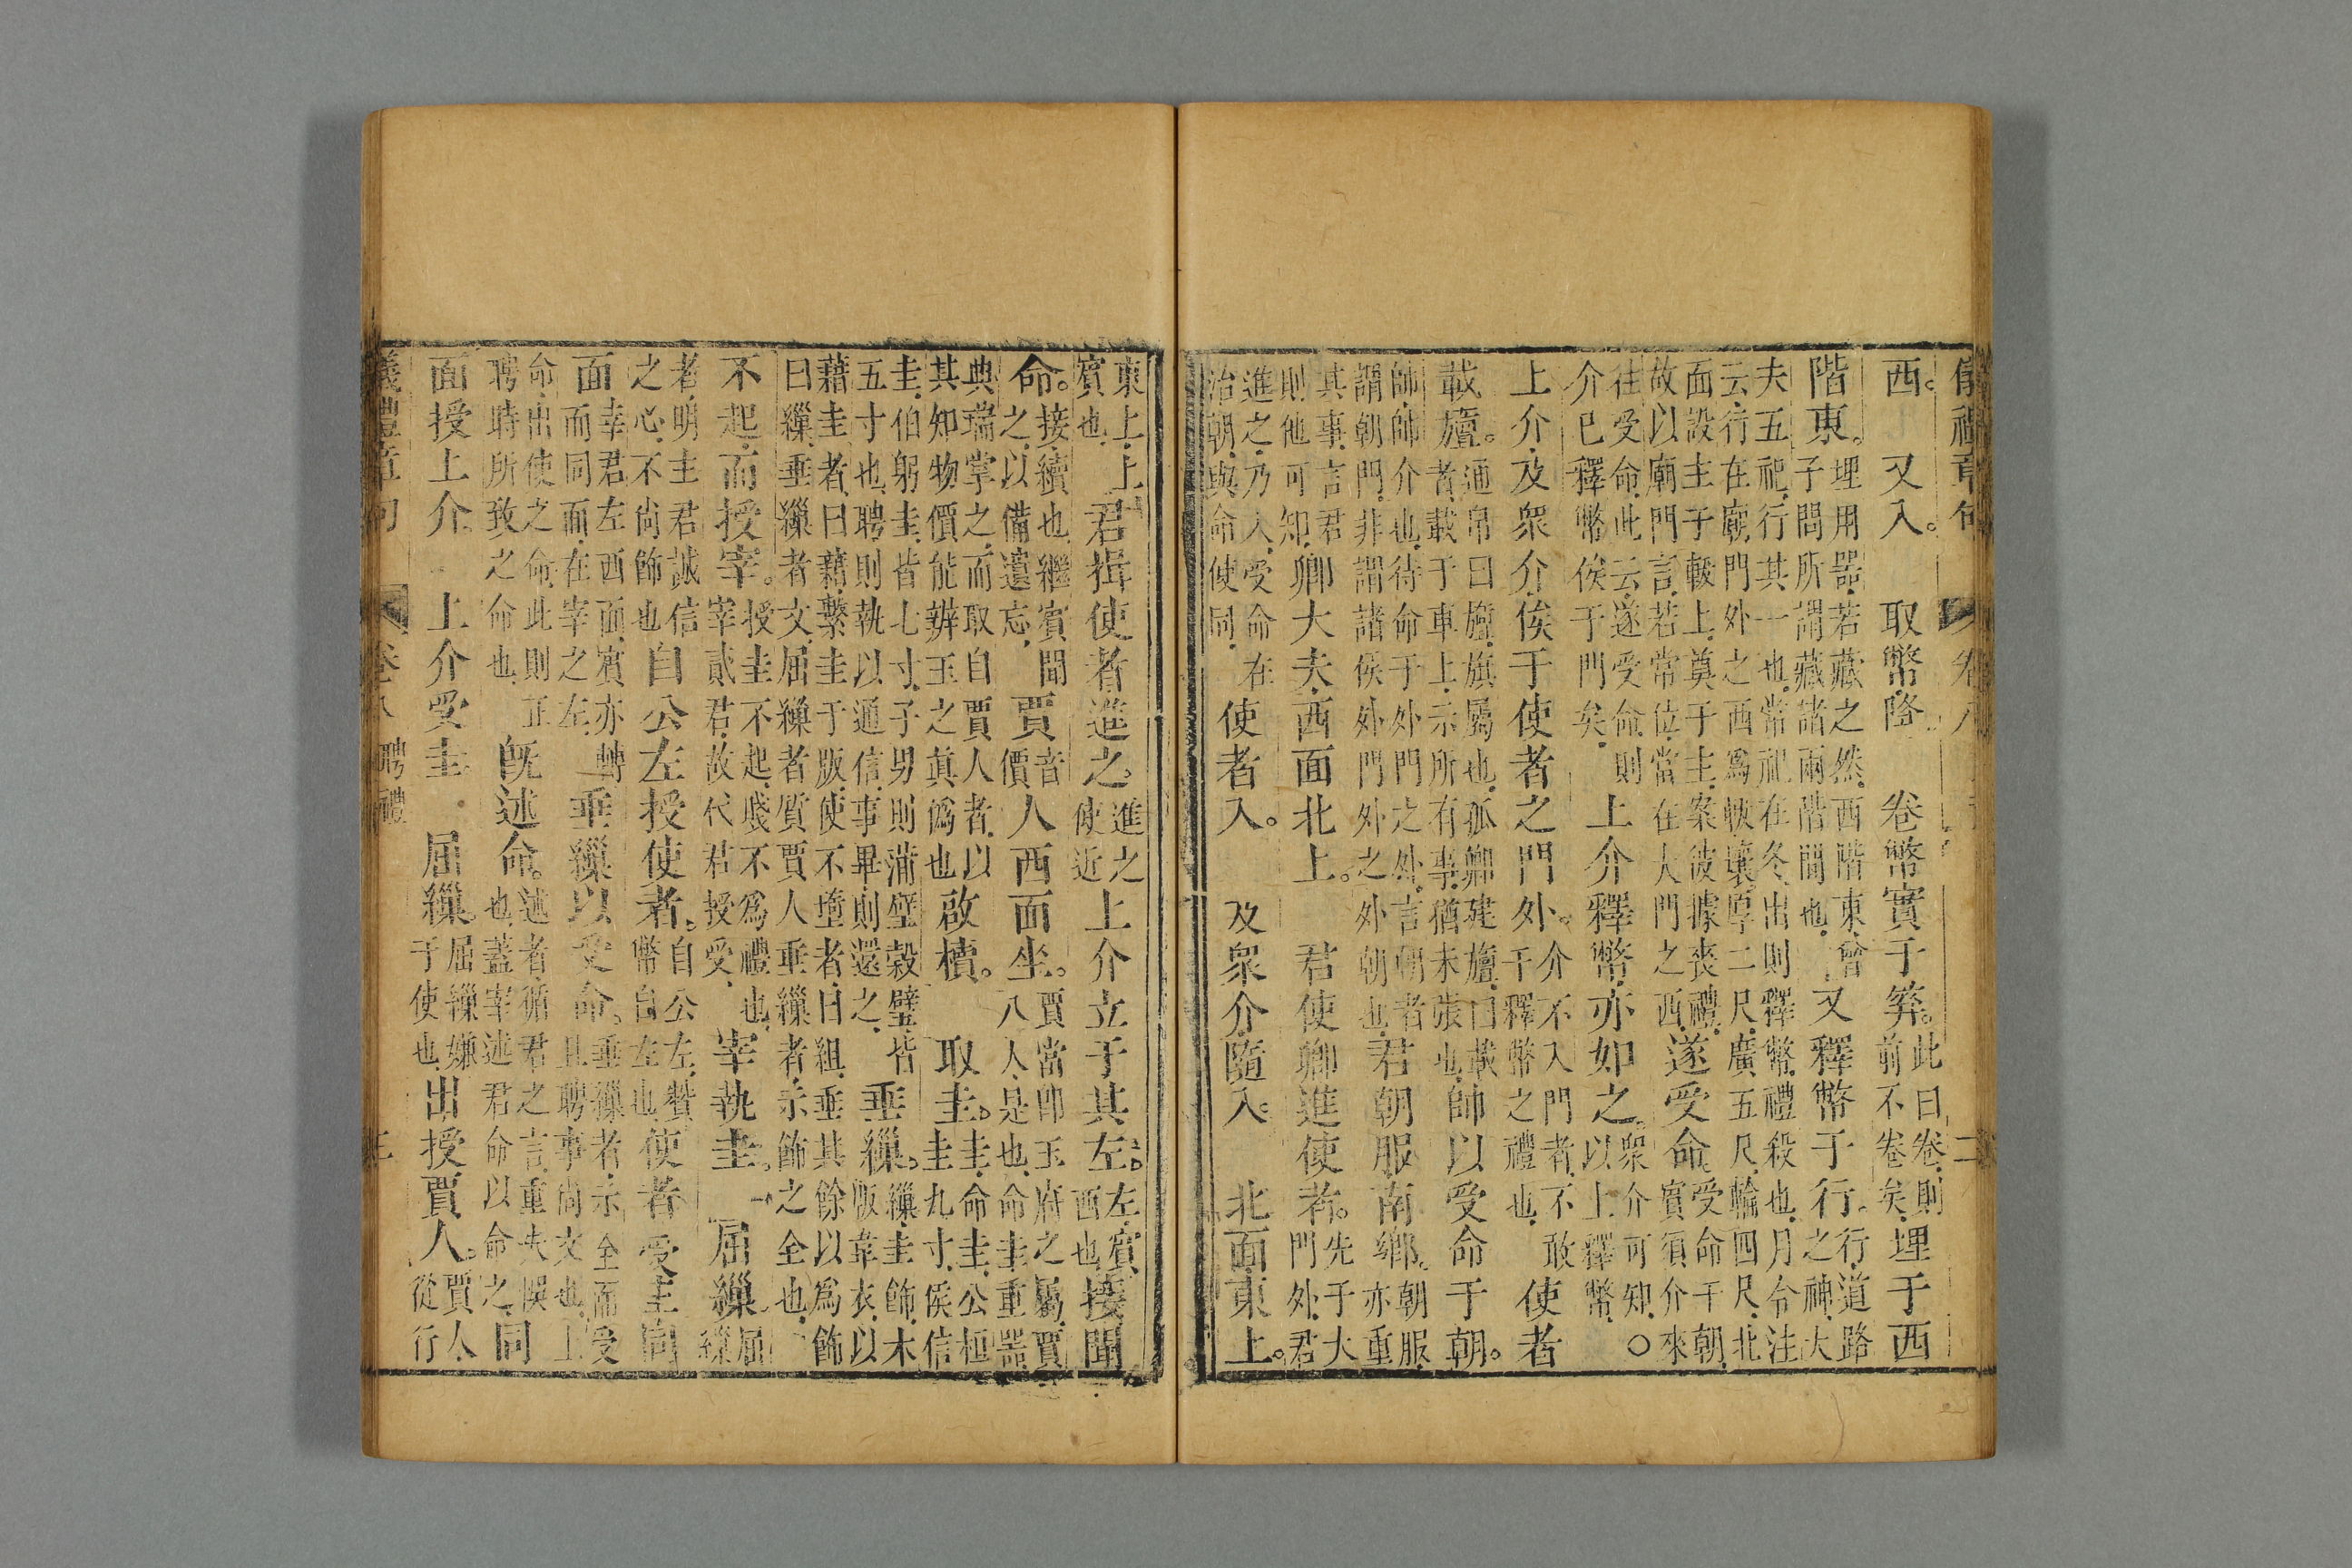 西。又入。取幣降。卷幣實于筭。此曰卷則前不卷矣埋于西
階東。埋用器若藏之然西階東曾子問所謂藏諸兩階間也又釋幣于行。行道路之神大
夫五祀行其一也幣祀在冬出則釋幣禮殺也月令注
云行在廟門外之西爲軷壤厚二尺廣五尺輪四尺北
面設主于軷上奠于主案彼據喪禮遂受命。受命于朝
故以廟門言若常位當在大門之西賓須介來
往受命此云遂受命則介已釋幣俟于門矣上介釋幣亦如之。衆介可知以上釋幣○
上介及衆介俟于使者之門外。介不入門者不敢于釋幣之禮也使者
載旜。通帛曰旜旗屬也孤卿建旜曰載者載于車上示所有事猶未張也帥以受命于朝。
帥帥介也待命于外門之外言朝者謂朝門非謂諸侯外門外之外朝也君朝服南鄉。朝服亦重
其事言君則他可知卿大夫西面北上。君使卿進使者。先于大門外君
進之乃入受命在治朝與命使同使者入。及衆介隨入。北面東上。
東上上賓也君揖使者進之。進之使近上介立于其左。左賓西也接聞
命。接續也繼賓聞之以備遺忘賈音價人西面坐。賈當卽玉府之屬賈八人是也命圭重器
典瑞掌之而取自賈人者以其知物價能辨玉之眞僞也啟櫝。取圭。圭命圭公桓圭九寸侯信
圭伯躬圭皆七寸子男則蒲璧穀璧皆五寸也聘則執以通信事畢則還之垂繅。繅圭飾木版韋衣以
藉圭者曰藉繫圭于版使不墮者曰組垂其餘以爲飾
曰繅垂繅者文屈繅者質賈人垂繅者示飾之全也
不起而授宰。授圭不起賤不爲禮也宰貳君故代君授受宰執圭。屈繅屈繅
者明主君誠信之心不尚飾也自公左授使者。自公左贊幣自左也使者受圭同
面幸君左西面賓亦轉而同面在宰之左垂繅以受命。垂繅者示全而受且聘事尚文也上
命出使之命此則正聘時所致之命也旣述命。述者循君之言重失悞也蓋宰述君命以命之同
面授上介上介受圭屈繅。屈繅嫌于使也出授賈人。賈人從行
儀禮章句
卷八
聘禮